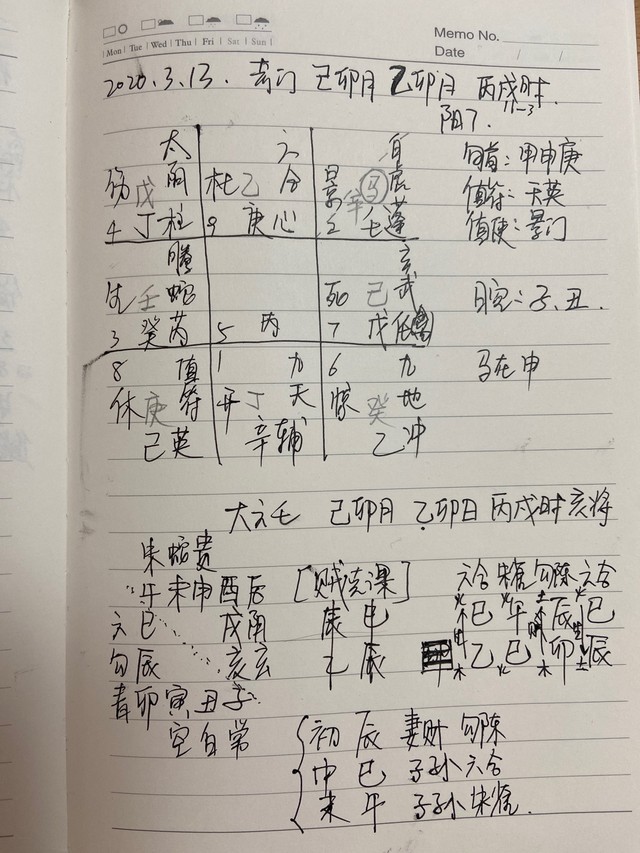 Memo No.
Mon Tue Wed Thu Fri Sat Sun
Date / /
2020.3.13. 奇门 己卯月 乙卯日 丙戌时
11-3
阳7.
太 六 白
伤 戊 阴 杜 乙 合 景 辛 马 虎
4 丁 柱 9 庚 心 2 壬 蓬
旬首：甲申庚
值符：天英
值使：景门
腾 玄
生 壬 蛇 死 己 武
3 癸 芮 5 丙 7 戊 任
日空：子、丑.
8 值 1 九 6 九
马在申
休 庚 符 开 丁 天 惊 癸 地
己 英 辛 辅 乙 冲
大六壬 己卯月 乙卯日 丙戌时 亥将
朱 蛇 贵
午 未 申 酉 [贼克课]
六合 朱雀 勾陈 六合
六 巳 戌 巳 巳 午 辰 巳
勾 辰 亥 玄 乙 辰 乙 巳 卯 辰
青 卯 寅 丑 子
空 白 常
初 辰 妻财 勾陈
中 巳 子孙 六合
末 午 子孙 朱雀.